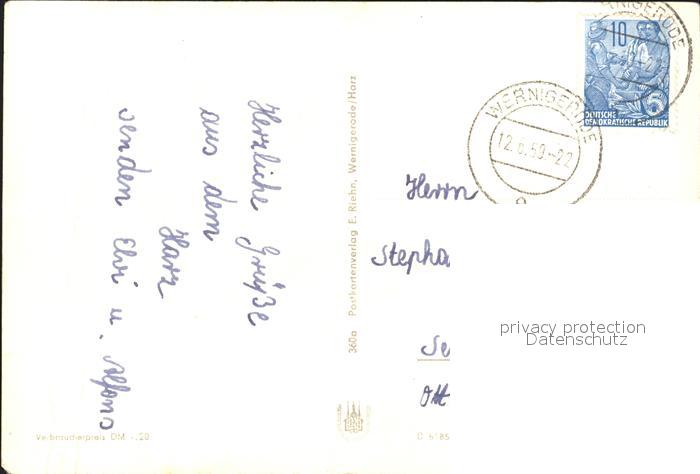 Herzliche Grüße
aus dem
Harz
senden Elvi u. Alfons
360a Postkartenverlag E. Riehn, Wernigerode/Harz
Verbraucherpreis DM -.20
WERNIGERODE
10
DEUTSCHE
DEMOKRATISCHE REPUBLIK
WERNIGERODE
-22
Herrn
Stepha
Se
Ott
privacy protection
Datenschutz